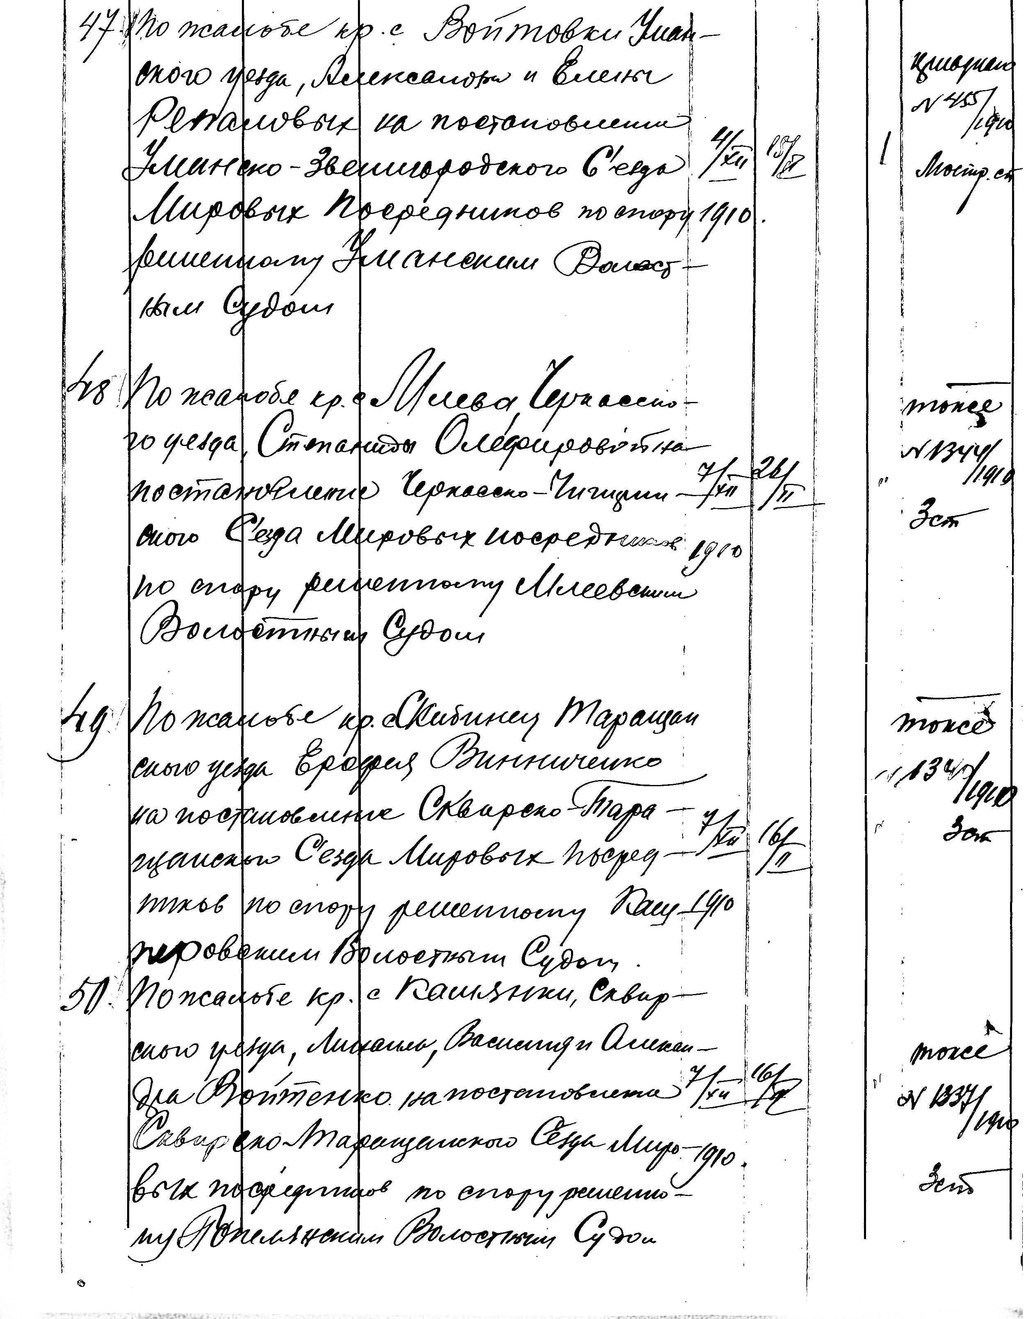 47. По жалобе кр. с. Войтовки Уман-
ского уезда, Александра и Елены
Репаловых на постановление
Уманско-Звенигородского С'езда
Мировых Посредников по спору
решенному Уманским Волост-
ным Судом
4/XII 1910.
1
N 455/1910
48 По жалобе кр. с Млева, Черкасско-
го уезда, Степаниды Олефировой на
постановление Черкасско-Чигирин-
ского С'езда Мировых посредников
по спору решенному Млеевским
Волостным Судом
7/XII 1910
26/II
"
тоже
N 1344/1910
3 ст
49 По жалобе кр. с Скибинец Таращан
ского уезда Ерофея Винниченко
на постановление Сквирско-Тара-
щанского С'езда Мировых Посред-
ников по спору решенному Каш-
перовским Волостным Судом.
7/XII 1910
16/II
"
тоже
/1910
3 ст
50. По жалобе кр. с Кашянки, Сквир-
ского уезда, Михаила, Василия и Алексан-
дра Войтенко на постановление
Сквирско-Таращанского С'езда Миро-
вых посредников по спору решенно-
му Волостным Судом
7/XII 1910.
"
тоже
N 1337/1910
3 ст